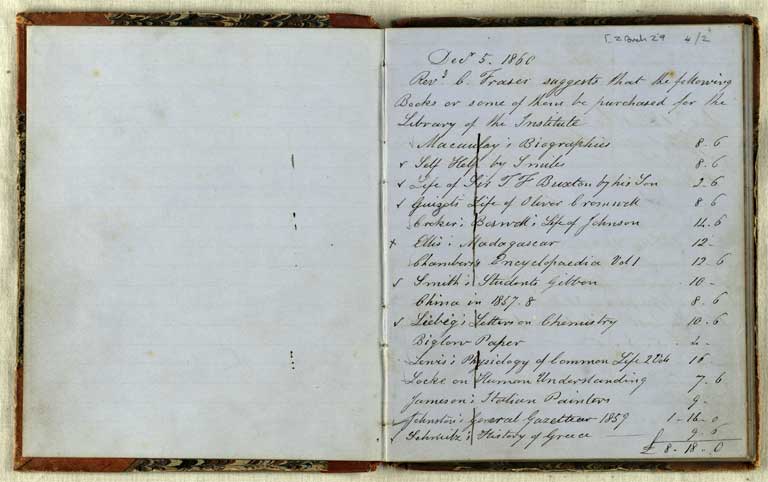 4/2
Decr 5. 1860
Revd. C. Fraser suggests that the following
Books or some of them be purchased for the
Library of the Institute
Macaulay's Biographies 8-6
Self Help by Smiles 8-6
Life of Sir T F Buxton by his Son 2-6
Guizot's Life of Oliver Cromwell 8-6
Croker's Boswell's Life of Johnson 14-6
x Ellis' Madagascar 12-
Chambers's Encyclopaedia Vol 1 12-6
Smith's Students Gibbon 10-
China in 1857.8 8-6
Liebeg's Letters on Chemistry 10-6
Biglow Paper
Lewis's Physiology of Common Life 2 Vols 16
Locke on Human Understanding 7-6
Jameson's Italian Painters 9-
Johnston's General Gazetteer 1859 1-16-0
Schmitz's History of Greece 9-6
£ 8-18-0